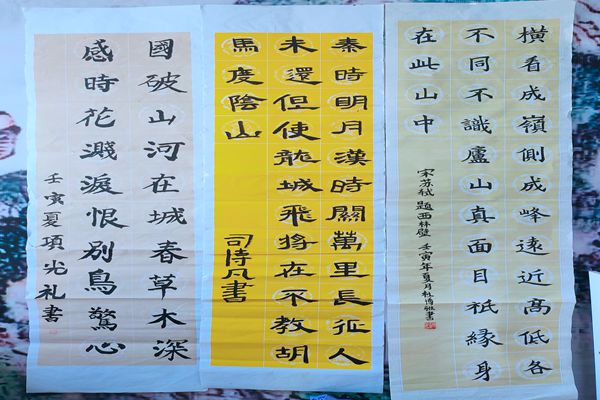 橫看成嶺側成峰遠近高低各
不同不識廬山真面目祇緣身
在此山中
宋苏轼題西林壁 壬寅年夏月杜書
秦時明月漢時關萬里長征人
未還但使龍城飛將在不教胡
馬度陰山
司凡書
國破山河在城春草木深
感時花濺淚恨別鳥驚心
壬寅夏項光礼書